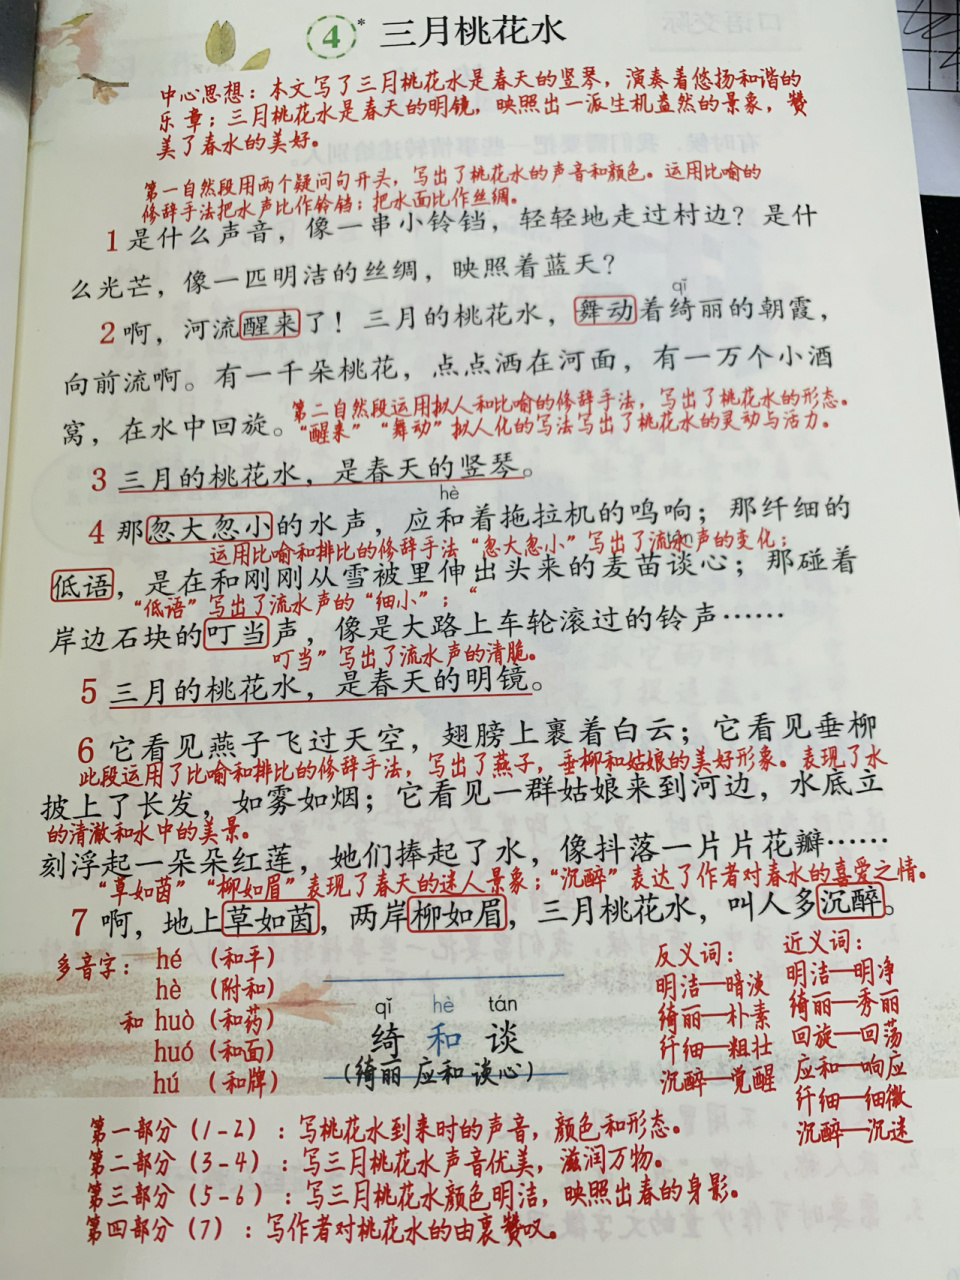 4* 三月桃花水
中心思想：本文写了三月桃花水是春天的竖琴，演奏着悠扬和谐的
乐章；三月桃花水是春天的明镜，映照出一派生机盎然的景象，赞
美了春水的美好。
第一自然段用两个疑问句开头，写出了桃花水的声音和颜色。运用比喻的
修辞手法把水声比作铃铛；把水面比作丝绸。
1 是什么声音，像一串小铃铛，轻轻地走过村边？是什
么光芒，像一匹明洁的丝绸，映照着蓝天？
qǐ
2 啊，河流醒来了！三月的桃花水，舞动着绮丽的朝霞，
向前流啊。有一千朵桃花，点点洒在河面，有一万个小酒
窝，在水中回旋。
第二自然段运用拟人和比喻的修辞手法，写出了桃花水的形态。
“醒来”“舞动”拟人化的写法写出了桃花水的灵动与活力。
3 三月的桃花水，是春天的竖琴。
hè
4 那忽大忽小的水声，应和着拖拉机的鸣响；那纤细的
运用比喻和排比的修辞手法“忽大忽小”写出了流水声的变化；
低语，是在和刚刚从雪被里伸出头来的麦苗谈心；那碰着
“低语”写出了流水声的“细小”；“
岸边石块的叮当声，像是大路上车轮滚过的铃声……
叮当”写出了流水声的清脆。
5 三月的桃花水，是春天的明镜。
6 它看见燕子飞过天空，翅膀上裹着白云；它看见垂柳
此段运用了比喻和排比的修辞手法，写出了燕子，垂柳和姑娘的美好形象。表现了水
披上了长发，如雾如烟；它看见一群姑娘来到河边，水底立
的清澈和水中的美景。
刻浮起一朵朵红莲，她们捧起了水，像抖落一片片花瓣……
“草如茵”“柳如眉”表现了春天的迷人景象；“沉醉”表达了作者对春水的喜爱之情。
7 啊，地上草如茵，两岸柳如眉，三月桃花水，叫人多沉醉。
多音字：
和
hé （和平）
hè （附和）
huò （和药）
huó （和面）
hú （和牌）
qǐ hè tán
绮 和 谈
（绮丽 应和 谈心）
反义词：
明洁—暗淡
绮丽—朴素
纤细—粗壮
沉醉—觉醒
近义词：
明洁—明净
绮丽—秀丽
回旋—回荡
应和—响应
纤细—细微
沉醉—沉迷
第一部分（1-2）：写桃花水到来时的声音，颜色和形态。
第二部分（3-4）：写三月桃花水声音优美，滋润万物。
第三部分（5-6）：写三月桃花水颜色明洁，映照出春的身影。
第四部分（7）：写作者对桃花水的由衷赞叹。